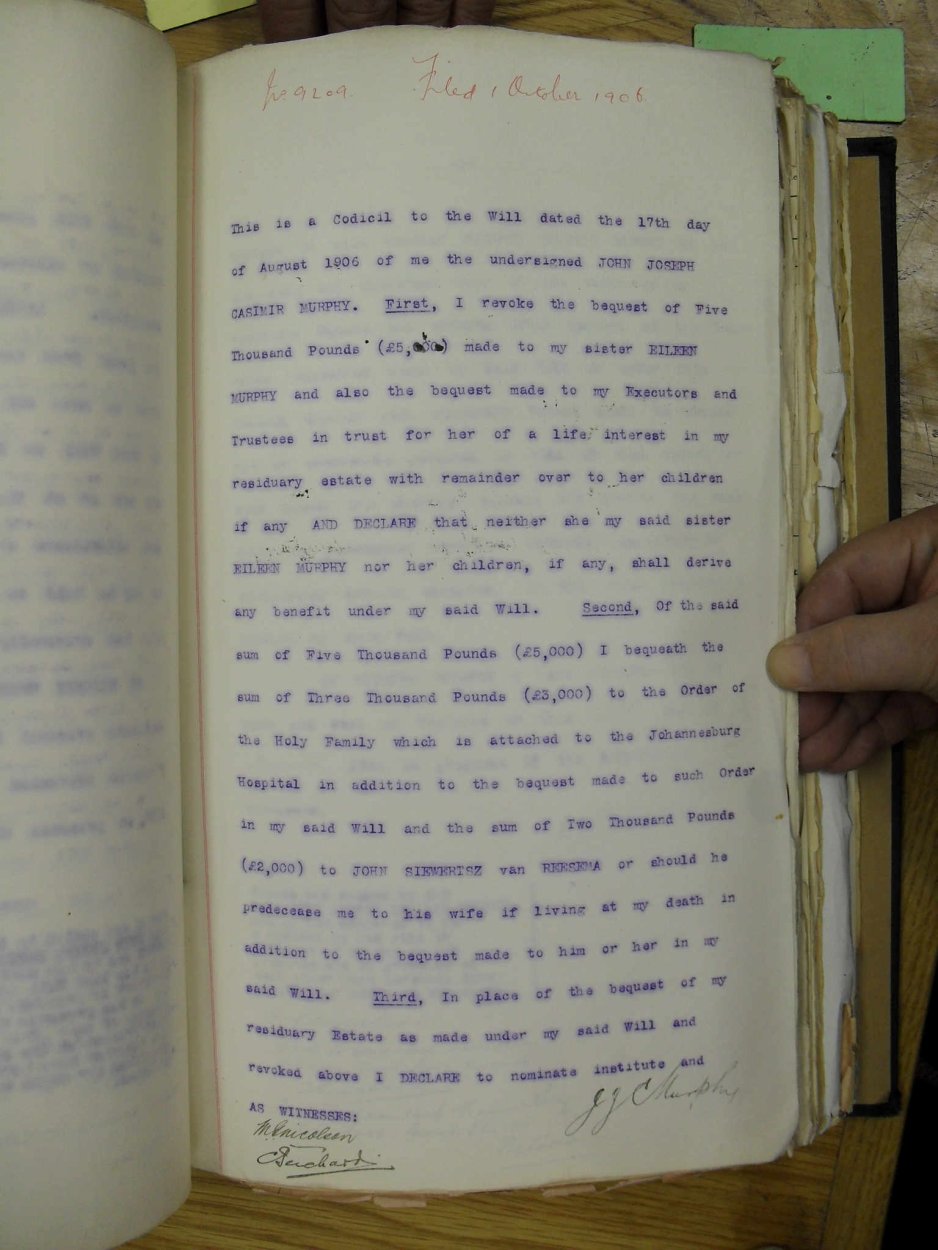 No. 9209. Filed 1 October 1906.
This is a Codicil to the Will dated the 17th day
of August 1906 of me the undersigned JOHN JOSEPH
CASIMIR MURPHY. First, I revoke the bequest of Five
Thousand Pounds (£5,000) made to my sister EILEEN
MURPHY and also the bequest made to my Executors and
Trustees in trust for her of a life interest in my
residuary estate with remainder over to her children
if any AND DECLARE that neither she my said sister
EILEEN MURPHY nor her children, if any, shall derive
any benefit under my said Will. Second, Of the said
sum of Five Thousand Pounds (£5,000) I bequeath the
sum of Three Thousand Pounds (£3,000) to the Order of
the Holy Family which is attached to the Johannesburg
Hospital in addition to the bequest made to such Order
in my said Will and the sum of Two Thousand Pounds
(£2,000) to JOHN SIEWERTSZ van REESEMA or should he
predecease me to his wife if living at my death in
addition to the bequest made to him or her in my
said Will. Third, In place of the bequest of my
residuary Estate as made under my said Will and
revoked above I DECLARE to nominate institute and
J J C Murphy
AS WITNESSES: